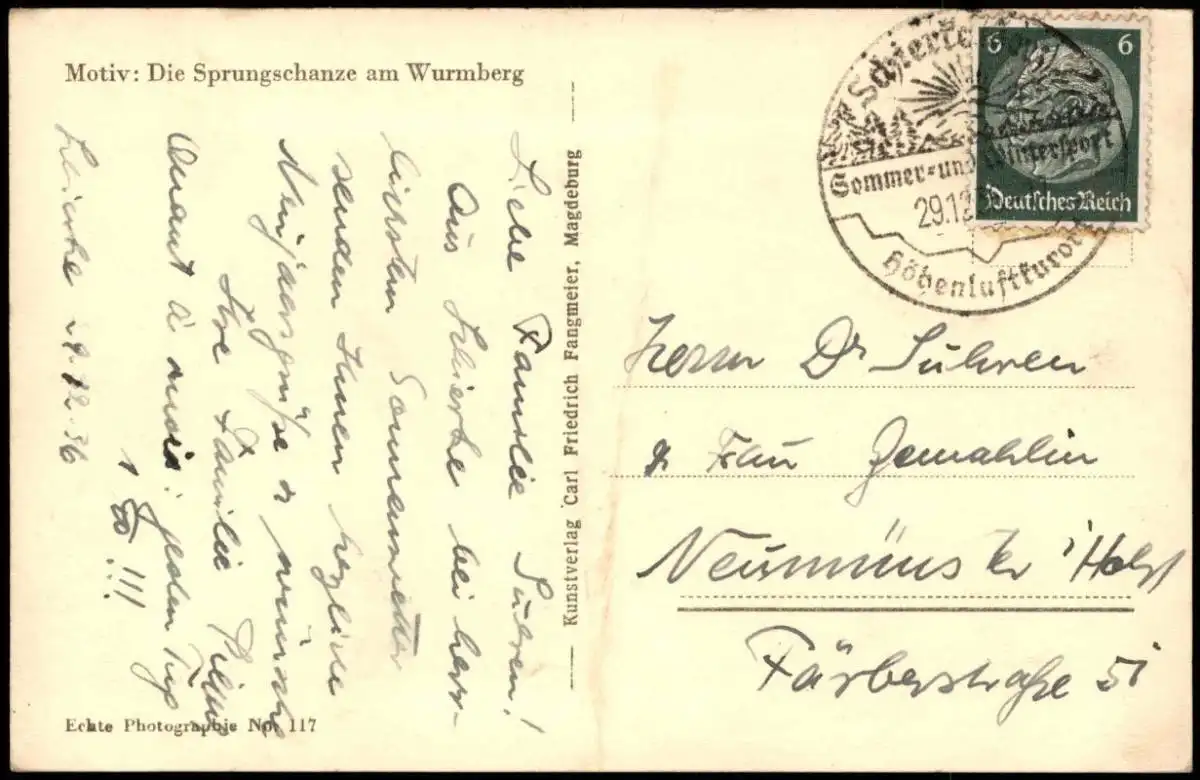 Motiv: Die Sprungschanze am Wurmberg
Liebe Familie Suhren!
Aus Schierke bei herr-
lichsten Sonnenwetter
senden Ihnen herzliche
Neujahrsgrüße & wünsche
Ihre Familie
jeden Tag
!!!
Schierke 29.12.36
Echte Photographie No. 117
Kunstverlag Carl Friedrich Fangmeier, Magdeburg
Schierke
Sommer- und Wintersport
29.12
Höhenluftkurort
6 6
Deutsches Reich
Herrn Dr Suhren
& Frau Gemahlin
Neumünster i/Holst
Färberstraße 51